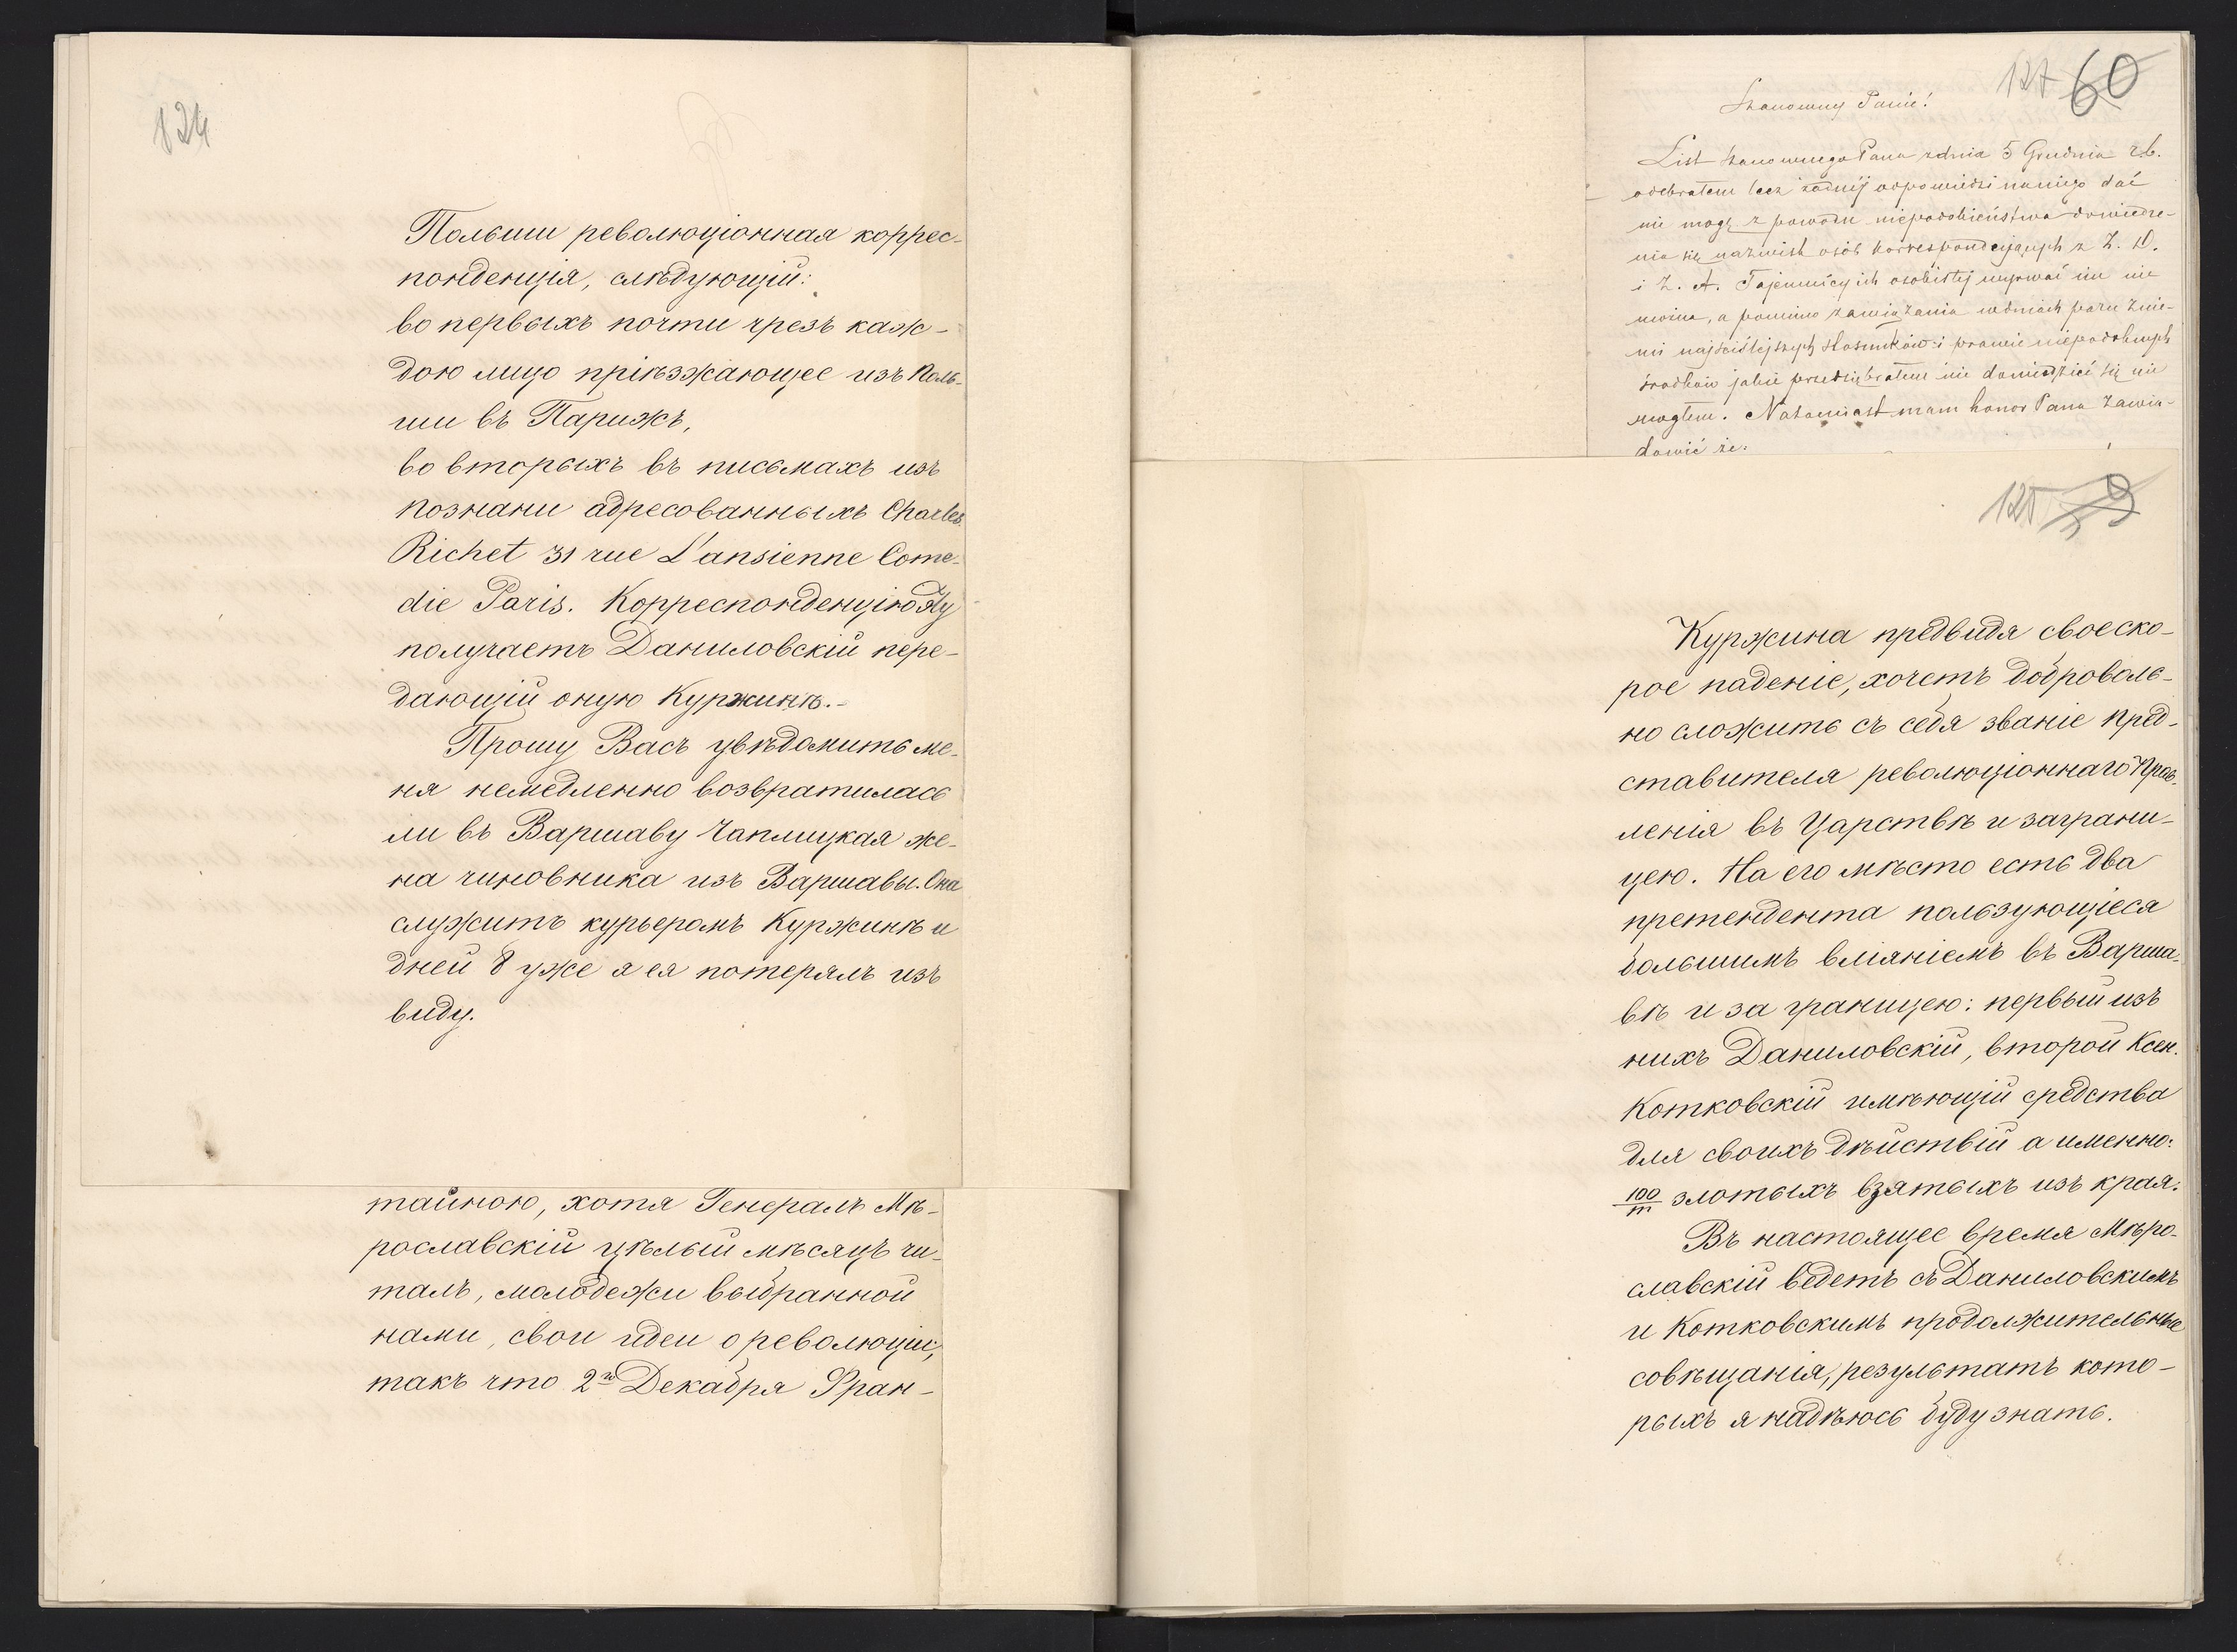 124
Польши революціонная коррес-
понденція, слѣдующій:
во первыхъ почти чрезъ каж-
дою лицо пріѣзжающее изъ Поль-
ши въ Парижъ,
во вторыхъ въ письмахъ изъ
Познани адресованныхъ Charles
Richet 31 rue L'ansienne Come-
die Paris. Корреспонденцію эту
получаетъ Даниловскій пере-
дающій оную Куржинѣ.-
Прошу Васъ увѣдомить ме-
ня немедленно возвратилась
ли въ Варшаву Чаплицкая же-
на чиновника изъ Варшавы. Она
служитъ курьеромъ Куржинѣ и
дней 8 уже я ея потерялъ изъ
виду.
тайною, хотя Генералъ Мѣ-
рославскій цѣлый мѣсяцъ чи-
талъ, молодежи выбранной
нами, свои идеи о революціи,
такъ что 2го Декабря Фран-
127 60
Szanowny Panie!
List Szanownego Pana z dnia 5 Grudnia r.b.
odebrałem lecz żadnéj odpowiedzi na niego dać
nie mogę z powodu niepodobieństwa dowiedze-
nia się nazwisk osób korrespondujących z Z. D.
i Z. A. Tajemnicy ich osobistéj wyrwać im nie
można, a pomimo zawiązania w dniach paru z nie-
mi najściślejszych stosunków i prawie niepodobnych
środków jakie przedsiębrałem nie dowiedzieć się nie
mogłem. Natomiast mam honor Pana zawia-
domić że:
125
Куржина предвидя свое ско-
рое паденіе, хочетъ доброволь-
но сложить съ себя званіе пред-
ставителя революціоннаго Прав-
ленія въ Царствѣ и заграни-
цею. На его мѣсто есть два
претендента пользующіеся
большимъ вліяніемъ въ Варша-
вѣ и за границею: первый изъ
нихъ Даниловскій, второй Ксен.
Котковскій имѣющій средства
для своихъ дѣйствій а именно:
100/m злотыхъ взятыхъ изъ края.
Въ настоящее время Мѣро-
славскій ведетъ съ Даниловскимъ
и Котковскимъ продолжительные
совѣщанія, результатъ кото-
рыхъ я надѣюсь буду знать.